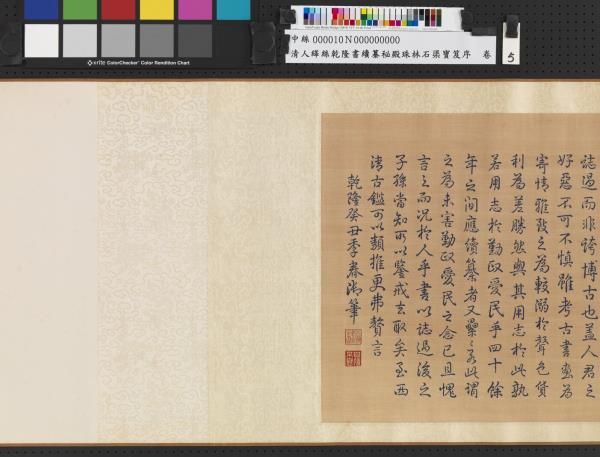 x-rite ColorChecker Color Rendition Chart
中絲 000010N000000000
清人緙絲乾隆書續纂秘殿珠林石渠寶笈序 卷
5
誌過而非誇博古也蓋人君之
好惡不可不慎雖考古書畫為
寄情雅致之為較溺於聲色貨
利為差勝然與其用志於此孰
若用志於勤政愛民乎四十餘
年之間應續纂者又纍〻若此謂
之為未害勤政愛民之念已且愧
言之而況於人乎書以誌過後之
子孫當知所以鑒戒去取矣至西
清古鑑可以類推更弗贅言
乾隆癸丑季春御筆